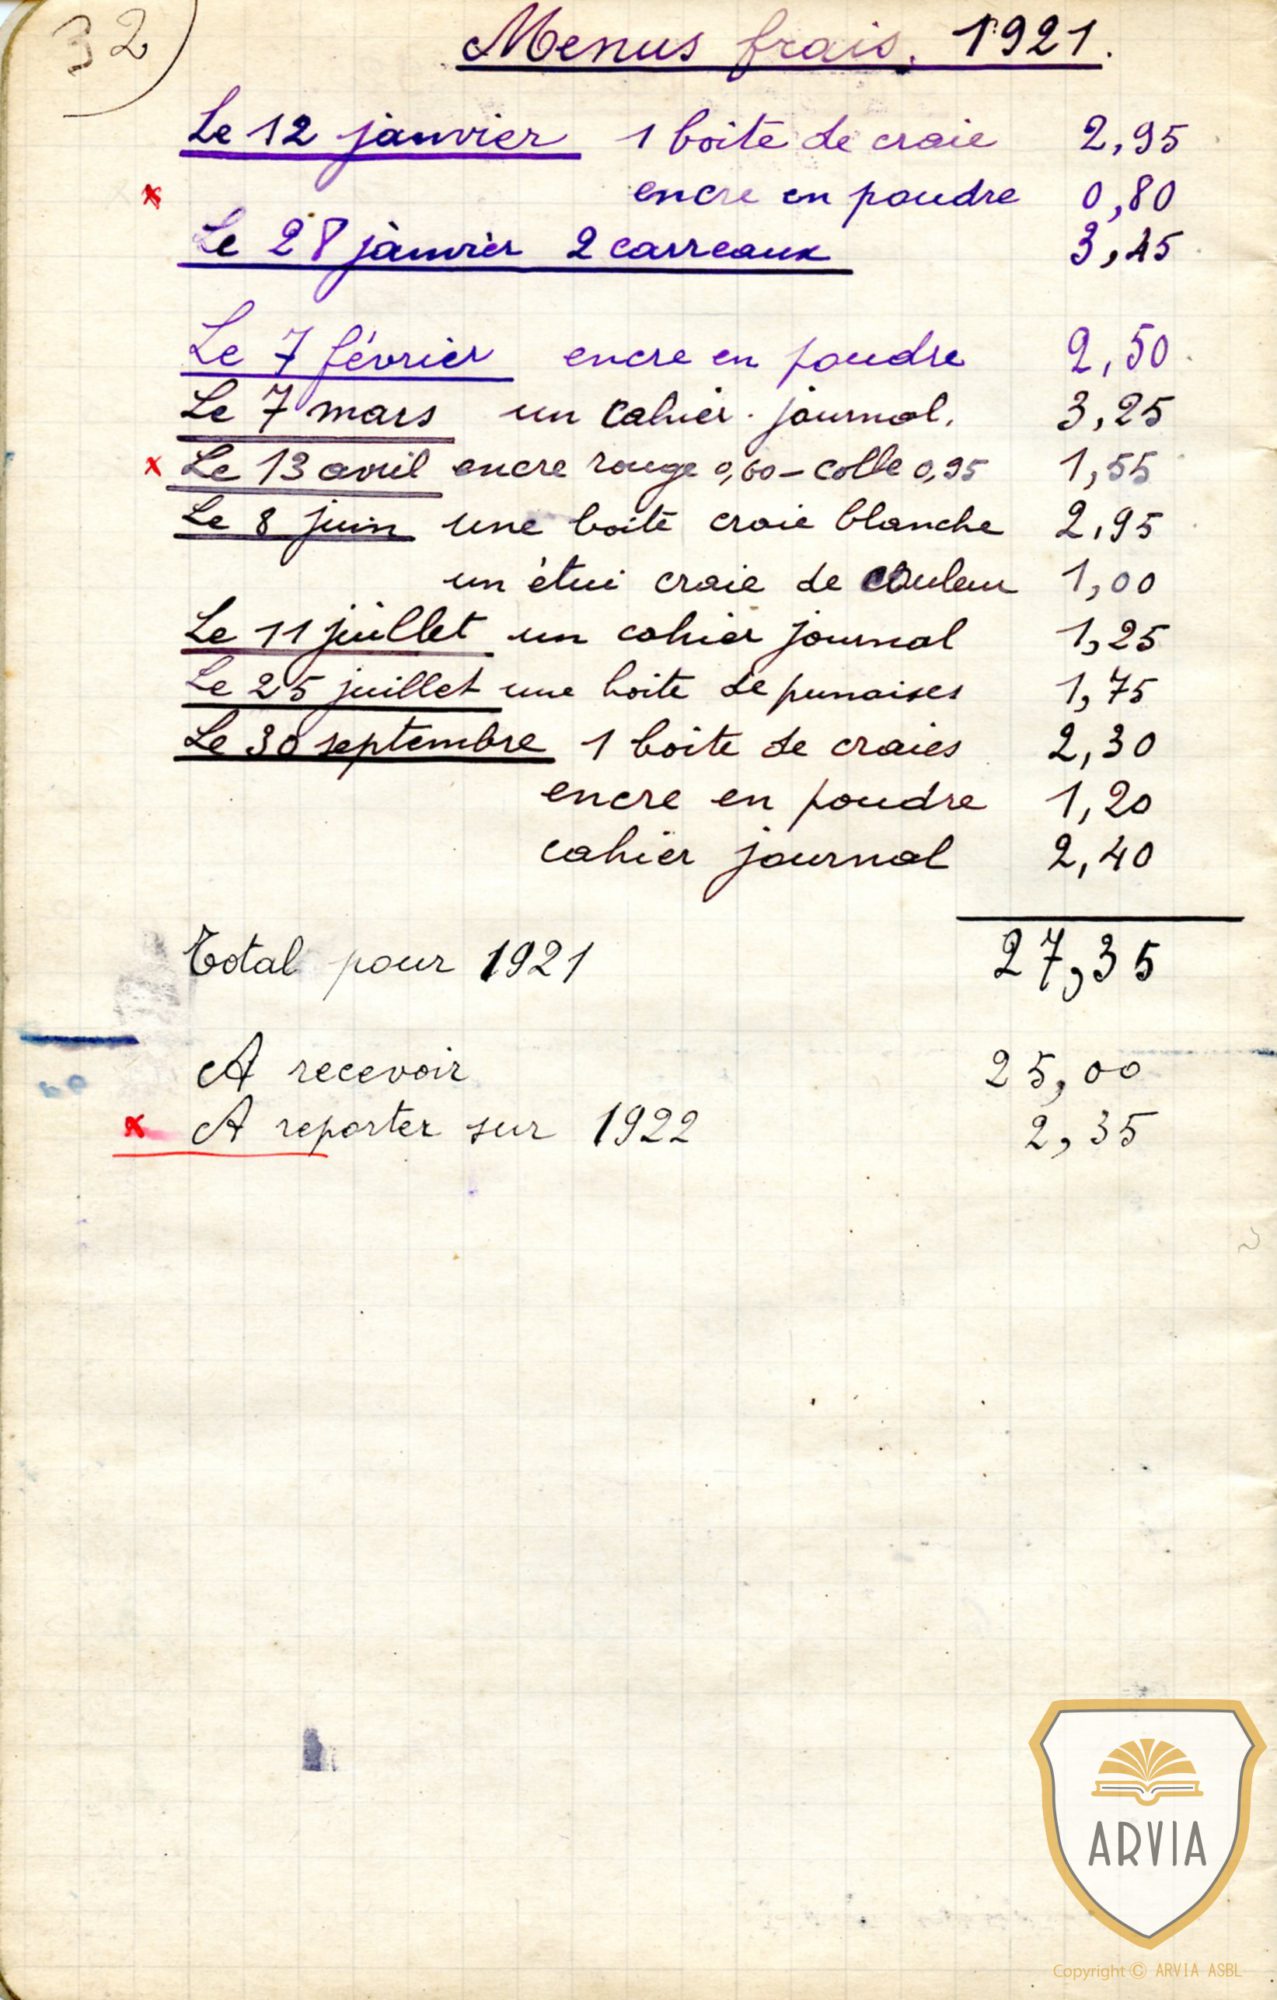 32
Menus frais. 1921.
Le 12 janvier 1 boite de craie 2,95
encre en poudre 0,80
Le 28 janvier 2 carreaux 3,45
Le 7 février encre en poudre 2,50
Le 7 mars un cahier-journal. 3,25
x Le 13 avril encre rouge 0,60 - colle 0,95 1,55
Le 8 juin une boite craie blanche 2,95
un étui craie de couleur 1,00
Le 11 juillet un cahier journal 1,25
Le 25 juillet une boite de punaises 1,75
Le 30 septembre 1 boite de craies 2,30
encre en poudre 1,20
cahier journal 2,40
Total pour 1921 27,35
A recevoir 25,00
x A reporter sur 1922 2,35
ARVIA
Copyright © ARVIA ASBL